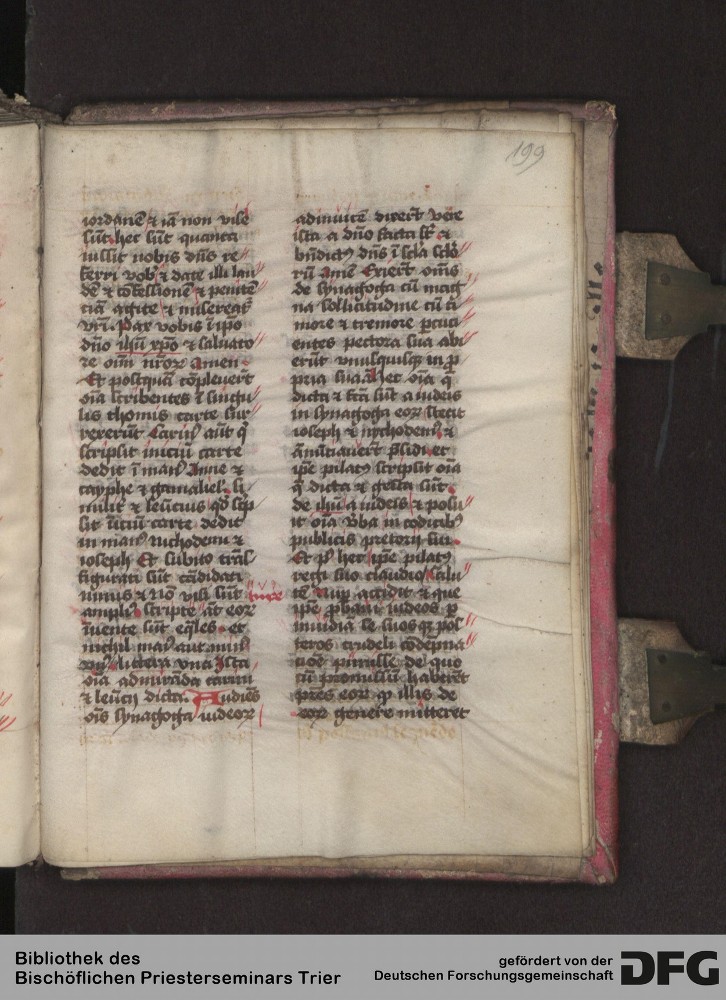 199
iordanē ⁊ iā non viſi
ſūt. hec ſūt quanta
iuſſit nobis dn̄s re
ferri vob̛ ⁊ date illi lau
dē ⁊ cōfeſſionē ⁊ penitē
tiā agite ⁊ miſereat᷑
vr̄i. Pax vobis ī ipo
dn̄o ihū xp̄o ⁊ ſaluato
re oīm nr̄oꝝ Amen
Et poſtquā cōpleuer̄t
oīa ſcribentes ī ſingu
lis thomis carte ſur
rexerūt Carin᷒ aūt q̄
ſcripſit iniciū carte
dedit ī man᷒ Anne ⁊
cayphe ⁊ gamaliel. ſi
militer ⁊ leucius qd̛ ſcp̄
ſit carte dedit
in man᷒ nichodemi ⁊
ioſeph Et ſubito trāſ
figurati ſūt cādidati
nimis ⁊ nō viſi ſūt
ampli᷒ ſcripte at̄ eoꝝ
īuente ſūt eq̄les. et
nichil mai᷒ aut min᷒
littera vna Iſta
oīa admirāda carini
⁊ leucij dicta. Audiēs
oīs ſynagoga iudeoꝝ
adinuicē dixer̄t vere
iſta a dn̄o facta ſt̄ ⁊
bn̄dict᷒ dn̄s ī ſcl̄a ſcl̄o
rū Amē Exier̄t om̄s
de ſynagoga cū mag
na ſollicitudine cū ti
more ⁊ tremore ꝑcuci
entes pectora ſua abi
erūt vnuſquiſqꝫ in ꝓ
pria ſua Hec oīa q̄
dicta ⁊ fc̄a ſūt a iudeis
in ſynagoga eoꝝ ſtatī
ioſeph ⁊ nychodem᷒ ⁊
ānūtiauer̄t p̄ſidi. et
ip̄e pilat᷒ ſcripſit oīa
q̄ dicta ⁊ geſta ſūt.
de ihū a iudeis ⁊ poſu
it oīa v̄ba in codicib᷒
publicis pretorij ſui
Et p᷒ hec ip̄e pilat᷒
regi ſuo claudio ſalu
tē Nup̄ accidit ⁊ que
ip̄e ꝓbaui iudeos ꝑ
inuidiā ſe ſuosqꝫ poſ
teros crudeli cōdempna
tiōe puniſſe de quo
cū promiſſū haberēt
pr̄es eoꝝ qꝫ illis de
eoꝝ genere mitteret
Bibliothek des
Bischöflichen Priesterseminars Trier
gefördert von der
Deutschen Forschungsgemeinschaft
DFG